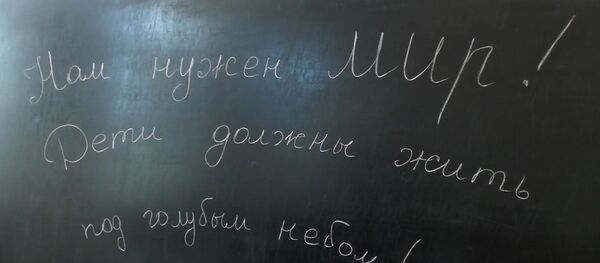 Нам нужен МИР!
Дети должны жить
под голубым небом!